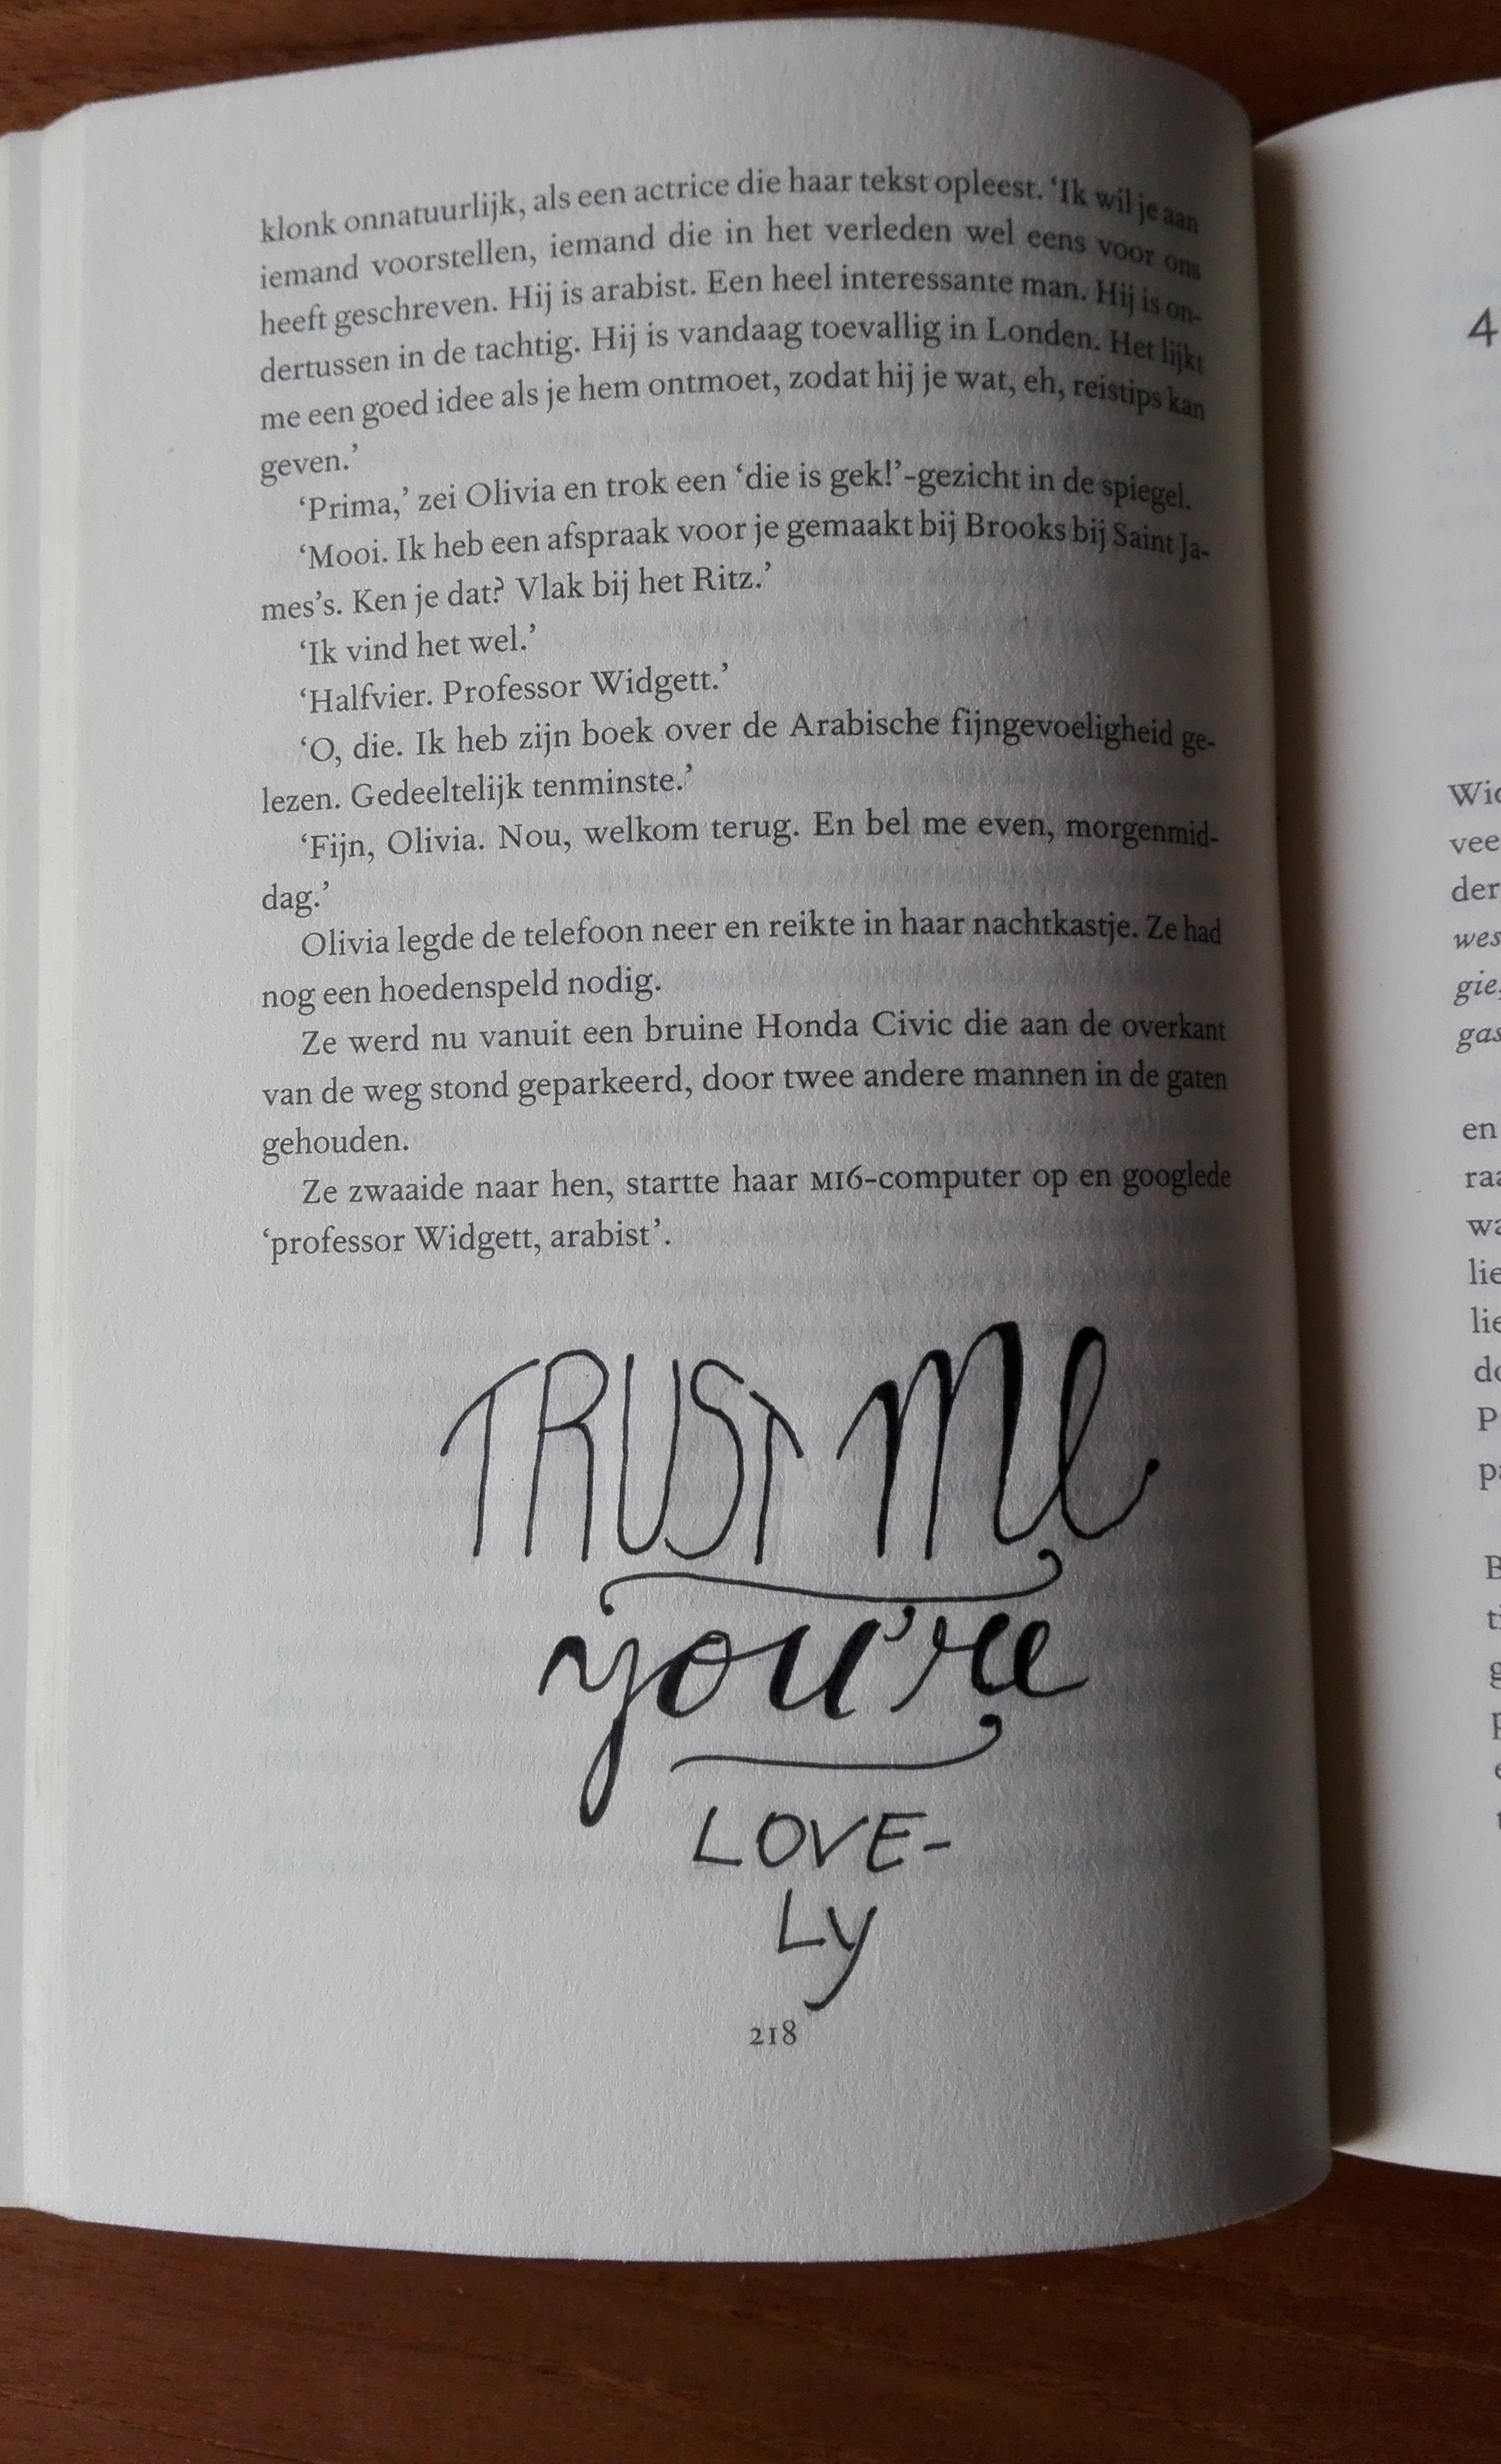 klonk onnatuurlijk, als een actrice die haar tekst opleest. ‘Ik wil je aan
iemand voorstellen, iemand die in het verleden wel eens voor ons
heeft geschreven. Hij is arabist. Een heel interessante man. Hij is on-
dertussen in de tachtig. Hij is vandaag toevallig in Londen. Het lijkt
me een goed idee als je hem ontmoet, zodat hij je wat, eh, reistips kan
geven.’
‘Prima,’ zei Olivia en trok een ‘die is gek!’-gezicht in de spiegel.
‘Mooi. Ik heb een afspraak voor je gemaakt bij Brooks bij Saint Ja-
mes’s. Ken je dat? Vlak bij het Ritz.’
‘Ik vind het wel.’
‘Halfvier. Professor Widgett.’
‘O, die. Ik heb zijn boek over de Arabische fijngevoeligheid ge-
lezen. Gedeeltelijk tenminste.’
‘Fijn, Olivia. Nou, welkom terug. En bel me even, morgenmid-
dag.’
Olivia legde de telefoon neer en reikte in haar nachtkastje. Ze had
nog een hoedenspeld nodig.
Ze werd nu vanuit een bruine Honda Civic die aan de overkant
van de weg stond geparkeerd, door twee andere mannen in de gaten
gehouden.
Ze zwaaide naar hen, startte haar MI6-computer op en googlede
‘professor Widgett, arabist’.
TRUST Me
you’re
LOVE-
Ly
218
4
vee
der
wes
gie,
gas
en
raa
wa
lie
lie